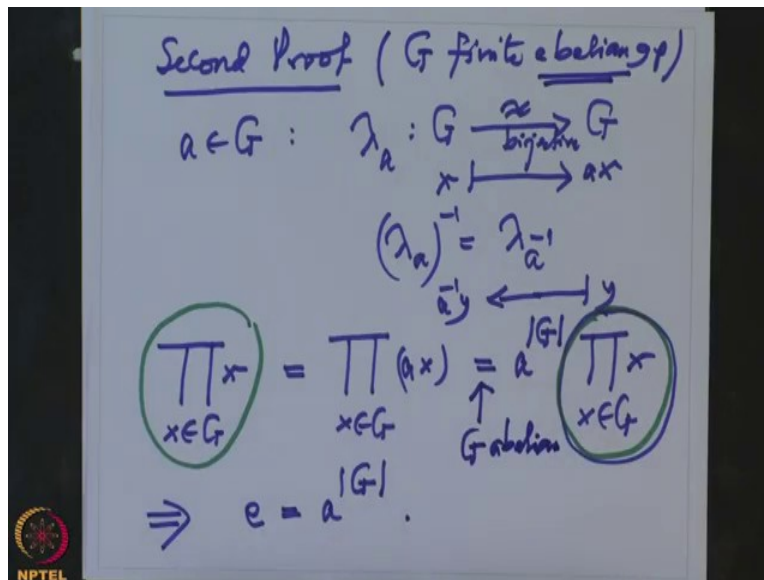 Second Proof ( G finite abelian gp)
a ∈ G : λ_a : G ⥲ G
bijective
x ⟼ ax
(λ_a)^{-1} = λ_{a^{-1}}
a^{-1}y ⟻ y
∏_{x∈G} x = ∏_{x∈G} (ax) = a^{|G|} ∏_{x∈G} x
↑
G abelian
⇒ e = a^{|G|} .
NPTEL